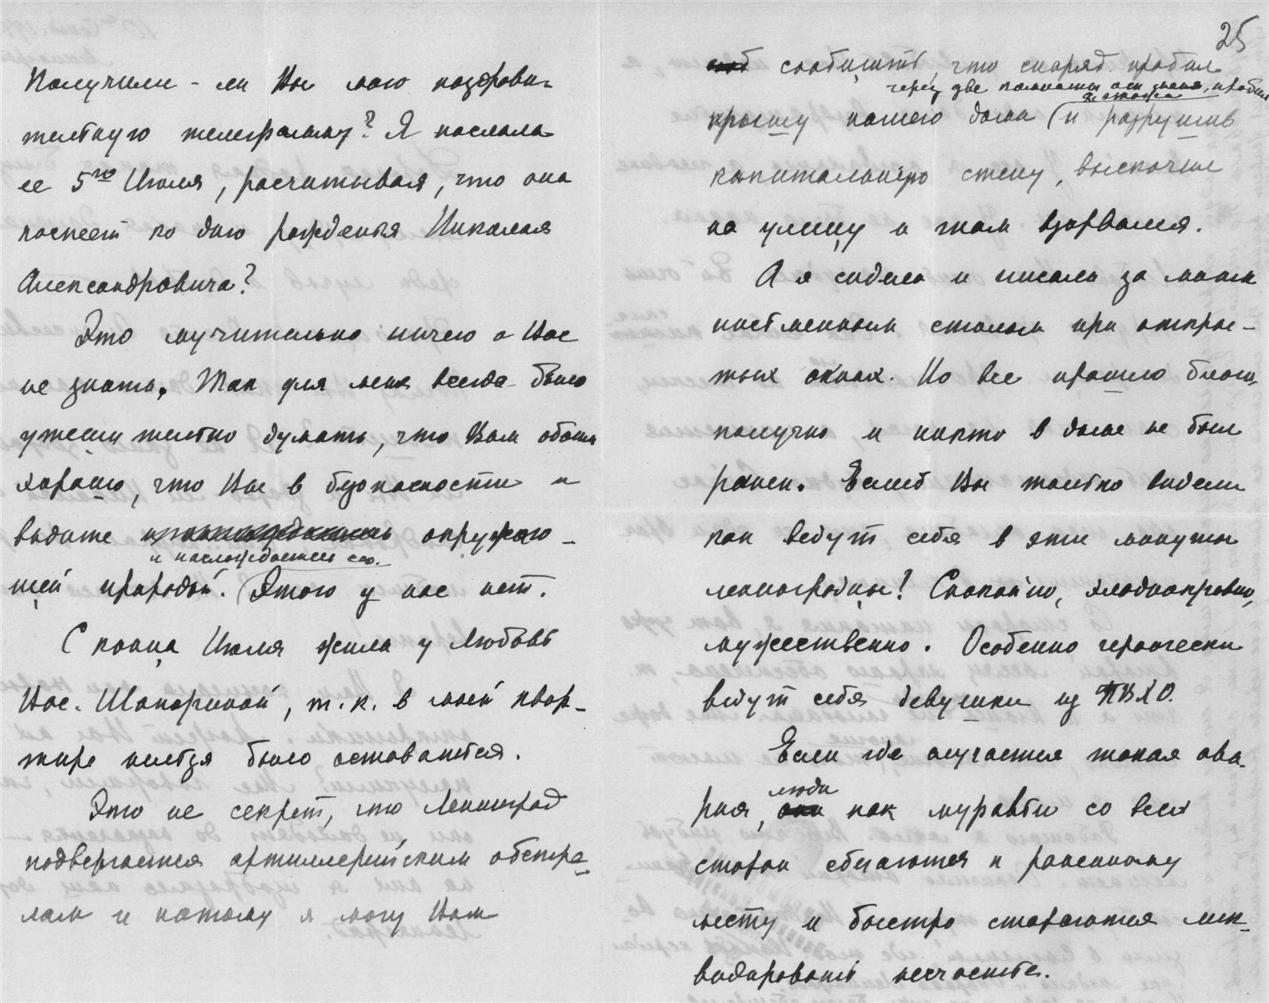 Получили-ли Вы мою поздрови-
тельную телеграмму? Я послала
ее 5го Июля, расчитывая, что она
поспеет ко дню рожденья Николая
Александровича?
Это мучительно ничего о Вас
не знать. Так для меня всегда было
утешительно думать, что Вам обоим
хорошо, что Вы в безопасности и
видите окружаю-
и наслаждаетесь ею.
щей природой. (Этого у нас нет.
С конца Июля жила у Любовь
Вас. Шапориной, т.к. в моей квар-
тире нельзя было оставаться.
Это не секрет, что Ленинград
подвергается артиллерийским обстре-
лам и потому я могу Вам
25
сообщить, что снаряд пробил
через две комнаты от меня, пробил
потолок
крышу нашего дома (и разрушив
капитальную стену, выскочил
на улицу и там взорвался.
А я сидела и писала за моим
письменным столом при откры-
тых окнах. Но все прошло благо
получно и никто в доме не был
ранен. Еслиб Вы только видели
как ведут себя в эти минуты
ленинградцы! Спокойно, хладнокровно,
мужественно. Особенно геройски
ведут себя девушки из ПВХО.
Если где случается такая ава-
люди
рия, они как муравьи со всех
сторон сбегаются к раненному
месту и быстро стараются лик-
видировать несчастье.